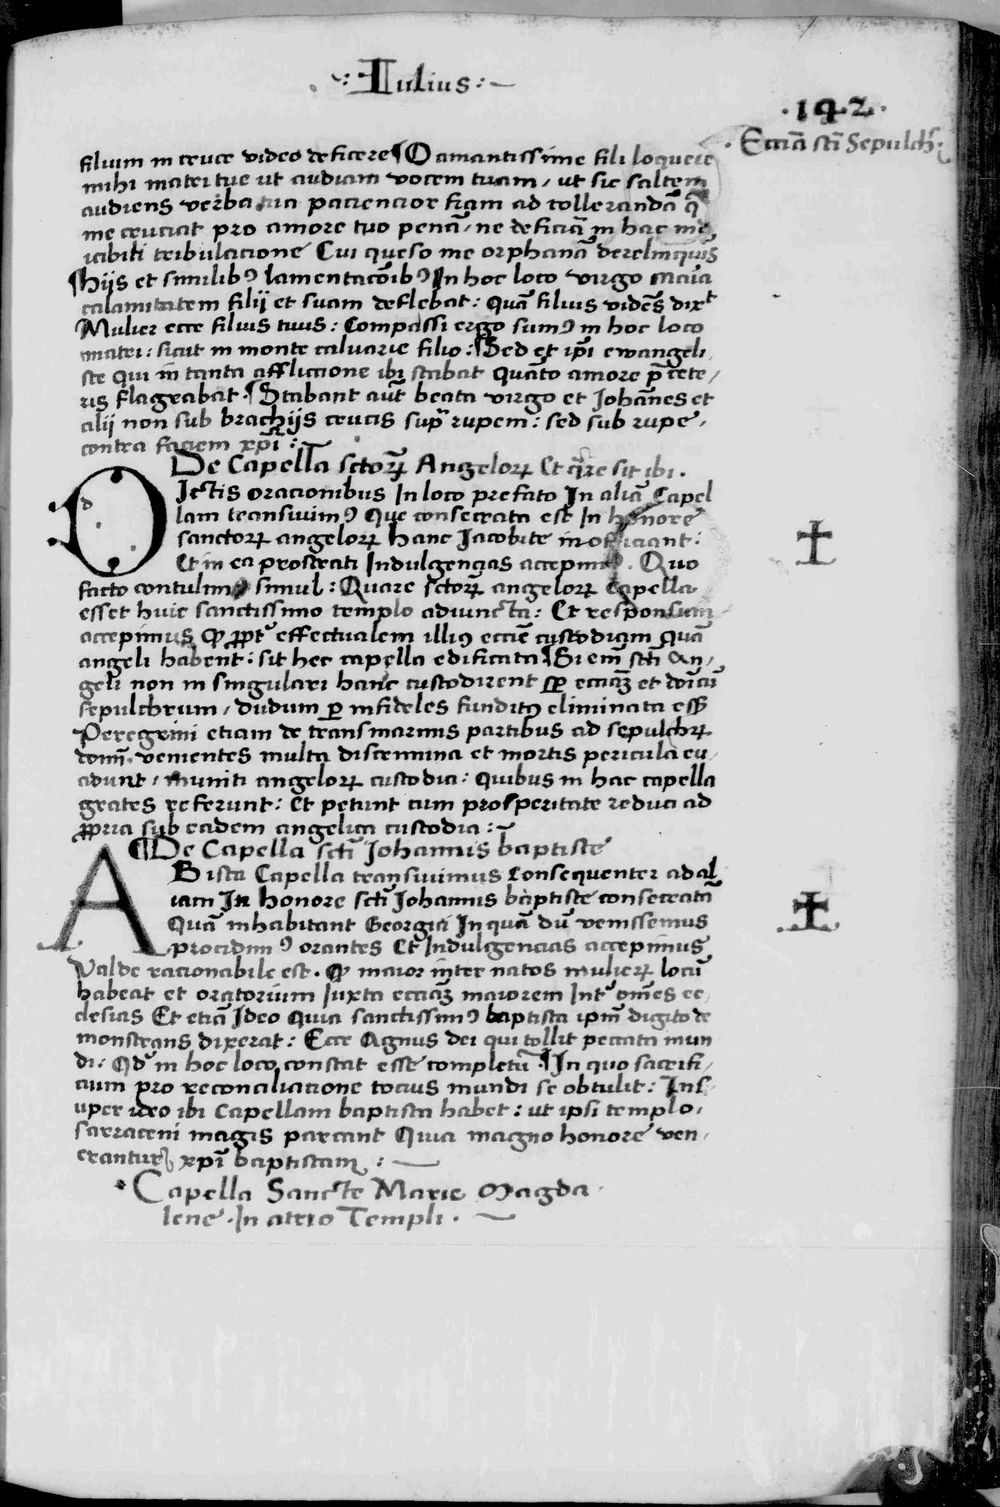 Iulius
·142·
Eccia sti Sepulch
filium in cruce video deficere ¶ O amantissime fili loquere
mihi matri tue ut audiam vocem tuam / ut sic saltem
audiens verba tua paciencior fiam ad tollerandā
me cruciat pro amore tuo penā / ne deficiā in hac
tribulacione Cui queso me orphanā derelinquis
¶ hijs et similibꝰ lamentacōibꝰ In hoc loco virgo
calamitatem filij et suam deflebat : Quā filius vidēs dixt
Mulier ecce filius tuus : Compassi ergo sumꝰ in hoc loco
matri : sicut in monte calvarie filio : ¶ Sed et ip̄i ewangeli
ste qui in tanta afflictione ibi stabat quāto amore p̄ cete /
ris flagrabat · ¶ Stabant aūt beata virgo et Johānes et
alij non sub brachijs crucis sup̄ rupem : sed sub rupe /
contra faciem xp̄i :
De Capella sctorꝝ Angelorꝝ Et q̄re sit ibi .
DIctis oracionibus In loco prefato In aliā Capel
lam transivimꝰ Que consecrata est In honore
sanctorꝝ angelorꝝ hanc Jacobite inofficiant :
Et in ea prostrati Indulgencias accepimꝰ . Quo
facto contulimꝰ simul : Quare sctorꝝ angelorꝝ Capella
esset huic sanctissimo templo adiuncta : Et responsum
accepimus ꝙ ꝓpt effectualem illiꝰ eccīe custodiam quā
angeli habent : sit hec capella edificata ¶ Si em̄ scti An /
geli non in singulari hanc custodirent eccīaꝫ et dōicū
sepulchrum / dudum ꝑ infideles funditꝰ eliminata ess
Peregrini etiam de transmarinis partibus ad sepulchrꝝ
dom̄i venientes multa discrimina et mortis pericula eu /
adunt / muniti angelorꝝ custodia : quibus in hac capella
grates referunt : Et petunt cum prosperitate reduci ad
ꝓpria sub eadem angelica custodia :
¶ De Capella scti Johannis baptiste
AB ista Capella transivimus Consequenter ad al
iam In honore scti Johannis baptiste consecratā
Quā inhabitant Georgici In quā dū venissemus
procidimꝰ orantes Et Indulgencias accepimus
Valde racionabile est . ꝙ maior inter natos mulierꝝ locū
habeat et oratorium Juxta eccīaꝫ maiorem Int omēs ec
clesias Et etiā Ideo quia sanctissimꝰ baptista ip̄m digito de
monstrans dixerat : Ecce Agnus dei qui tollit peccata mun
di : Qd in hoc loco constat esse completū ¶ In quo sacrifi /
cium pro reconciliatione tocius mundi se obtulit : Ins /
uper ideo ibi Capellam baptista habet : ut ipsi templo /
sarraceni magis parcant Quia magno honore ven /
erantur xp̄i baptistam :
Capella Sancte Marie Magda
lene · In atrio Templi .